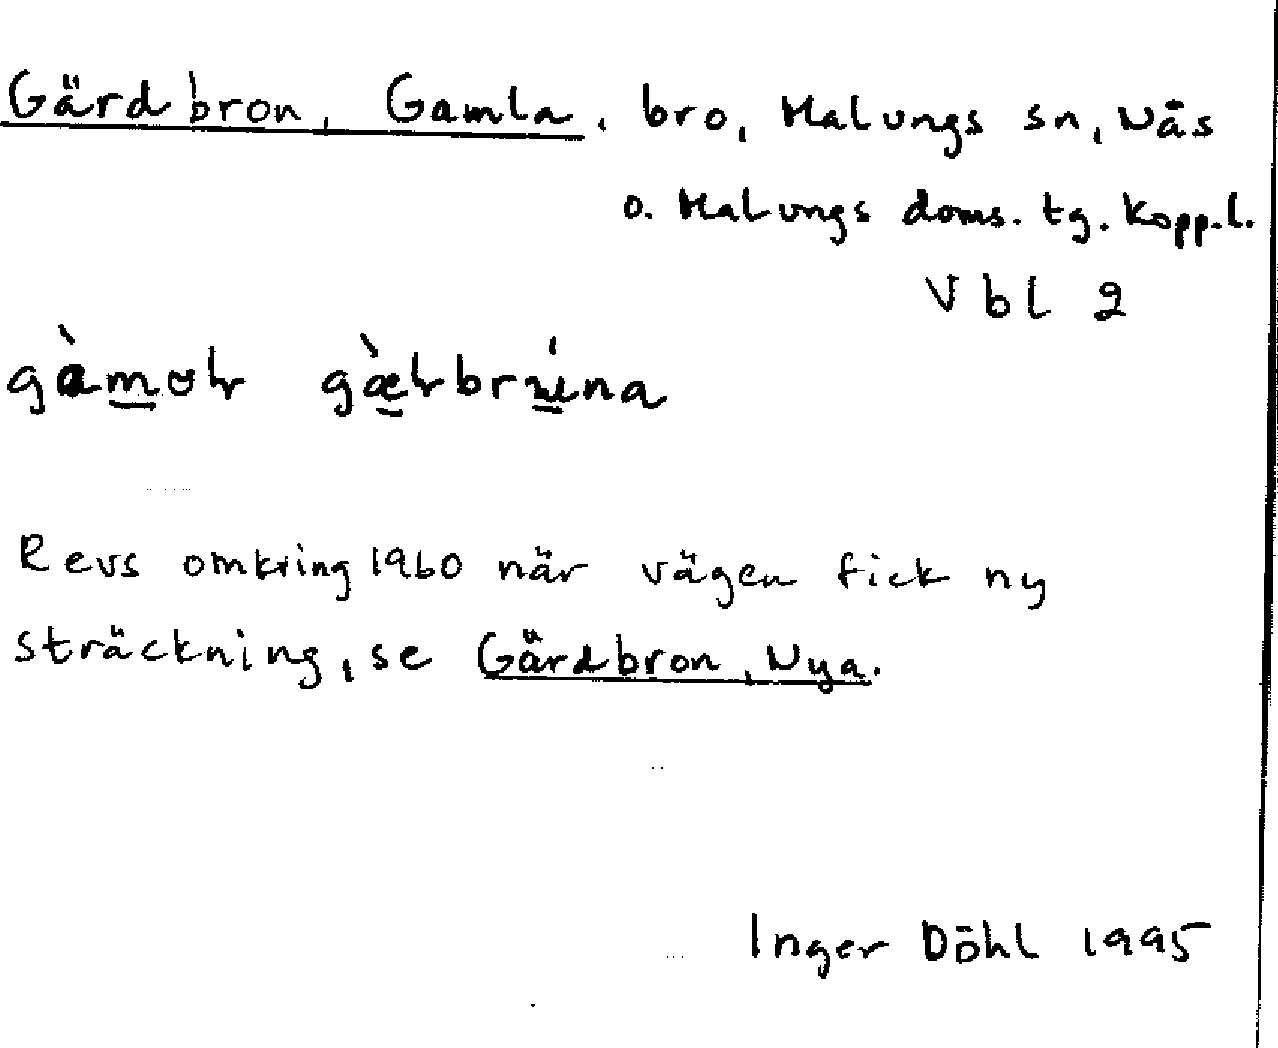 Gärdbron, Gamla, bro, Malungs sn, Nås
o. Malungs doms. tg. Kopp.l.
Vbl 2
Revs omkring 1960 när vägen fick ny
sträckning, se Gärdbron, Nya.
Inger Döhl 1995